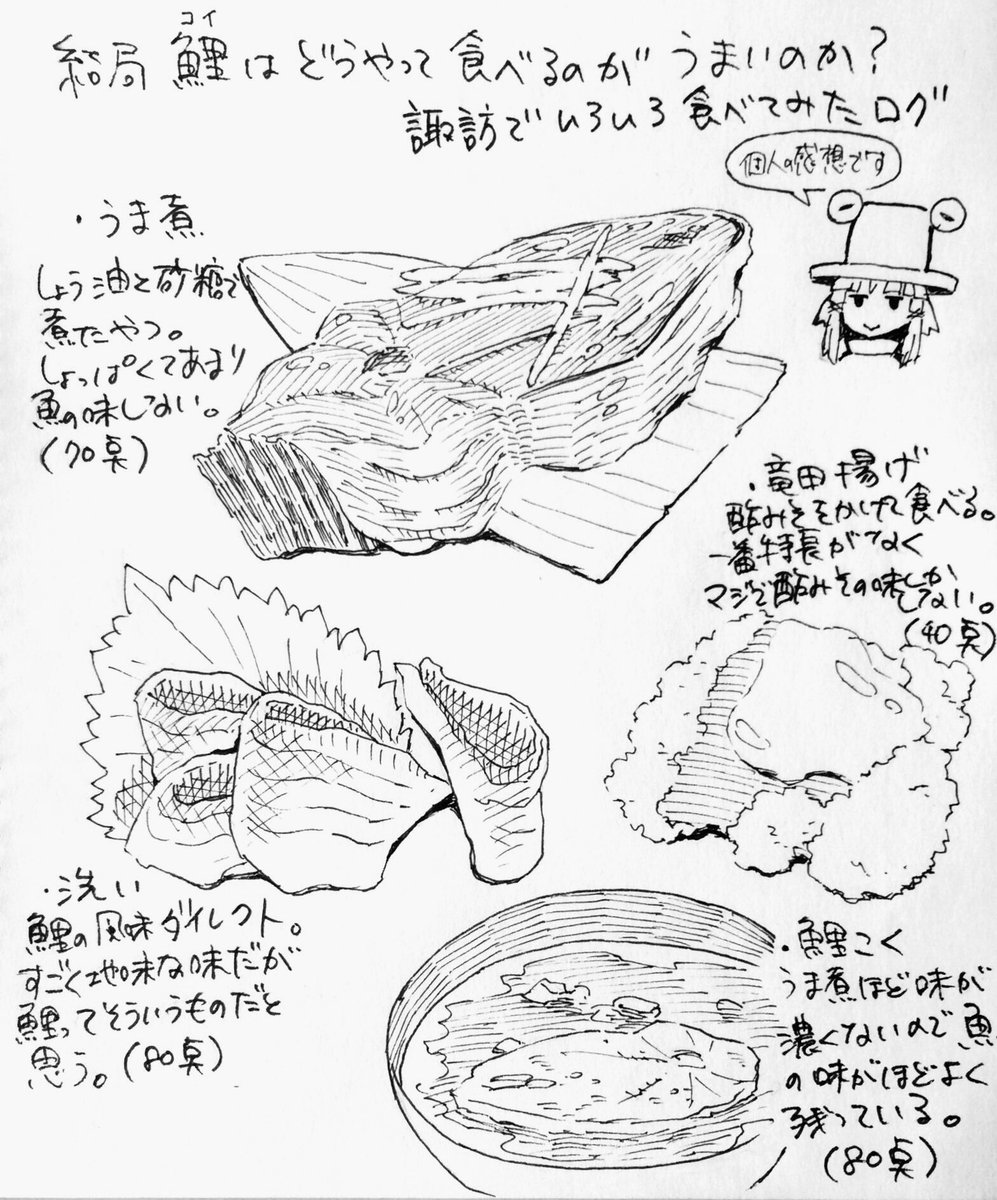 コイ
結局 鯉はどうやって食べるのがうまいのか？
諏訪でいろいろ食べてみたログ
個人の感想です
・うま煮
しょう油と砂糖で
煮たやつ。
しょっぱくてあまり
魚の味しない。
(70点)
・竜田揚げ
酢みそをかけて食べる。
一番特長がなく
マジで酢みその味しか
しない。
(40点)
・洗い
鯉の風味ダイレクト。
すごく地味な味だが
鯉ってそういうものだと
思う。(80点)
・鯉こく
うま煮ほど味が
濃くないので魚
の味がほどよく
残っている。
(80点)